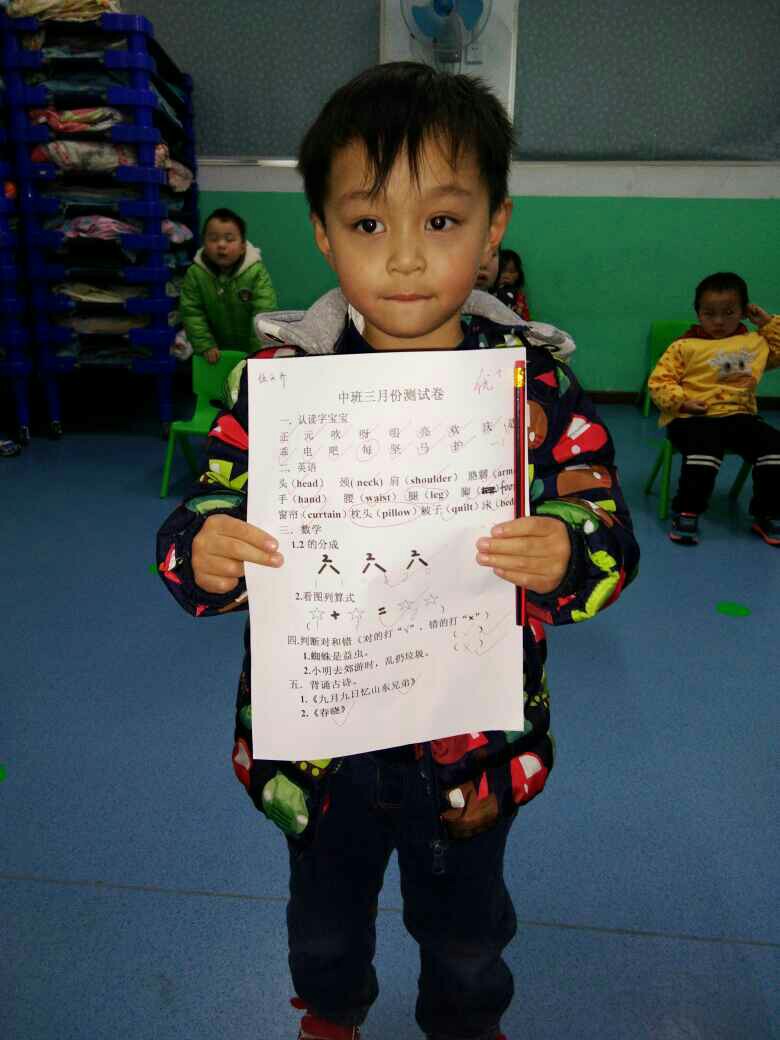 优+
中班三月份测试卷
一、认读字宝宝
正 元 吹 呀 唱 亮 欢 庆
乖 电 吧 每 坚 马 护
二、英语
头（head） 颈( neck) 肩（shoulder） 胳膊（arm
手（hand） 腰（waist） 腿（leg） 脚（ foo
窗帘（curtain）枕头（pillow）被子（quilt）床（bed
三、数学
1.2 的分成
2 2 2
2.看图列算式
☆ + ☆ = ☆ ☆
( )
四.判断对和错（对的打“√”，错的打“×”）
1.蜘蛛是益虫。 （√）
2.小明去郊游时，乱扔垃圾。 （×）
五．背诵古诗。
1.《九月九日忆山东兄弟》
2.《春晓》